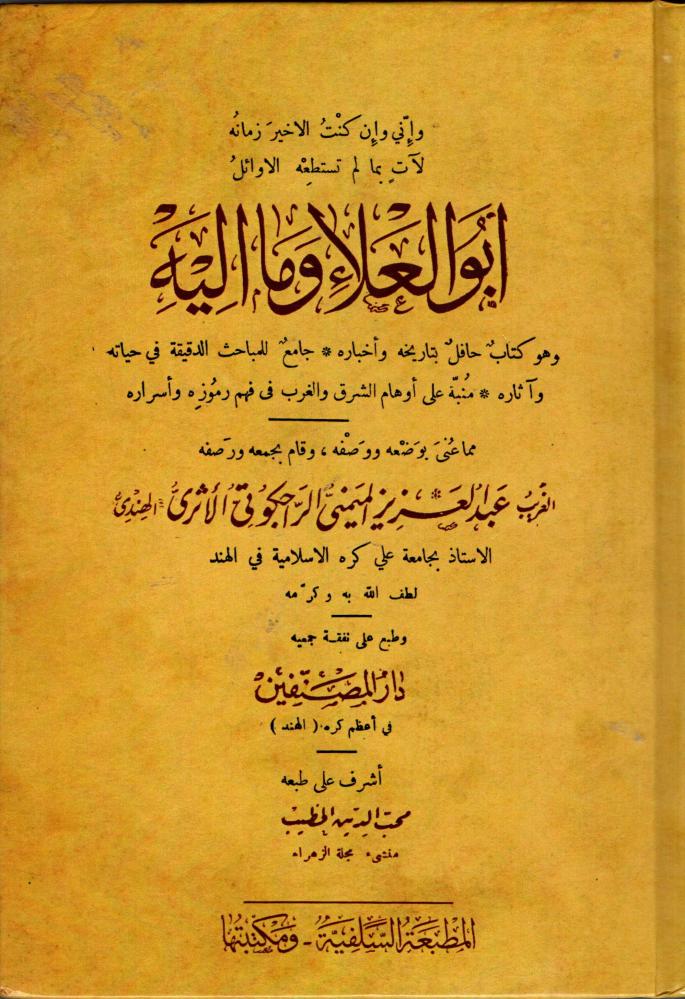 وإنّي وإن كنْتُ الاخيرَ زمانُه
لآتٍ بما لم تستطعْه الاوائلُ
أبُو العَلاءِ وَمَا إليَهْ
وهو كتابٌ حافلٌ بتاريخه وأخباره * جامعٌ للمباحث الدقيقة في حياته
وآثاره * مُنبّهٌ على أوهام الشرق والغرب فى فهم رموُزه وأسراره
مما عُنىَ بوَضْعه ووَصْفه ، وقام بجمعه ورَصفه
عَبد العَزيز الميَمنىّ الرّاجكوُتيّ الأثرىُّ الهنديّ
الاستاذ بجامعة علي كره الاسلامية في الهند
لطف الله به وكرّمه
وطبع على نفقة جمعيه
دَارُ المصَنّفِين
في أعظم كره ( الهند )
أشرف على طبعه
محبّ الدّين الخطيب
منشىء مجلة الزهراء
المَطبَعَة السَّلفيَّة - ومَكتبَتها